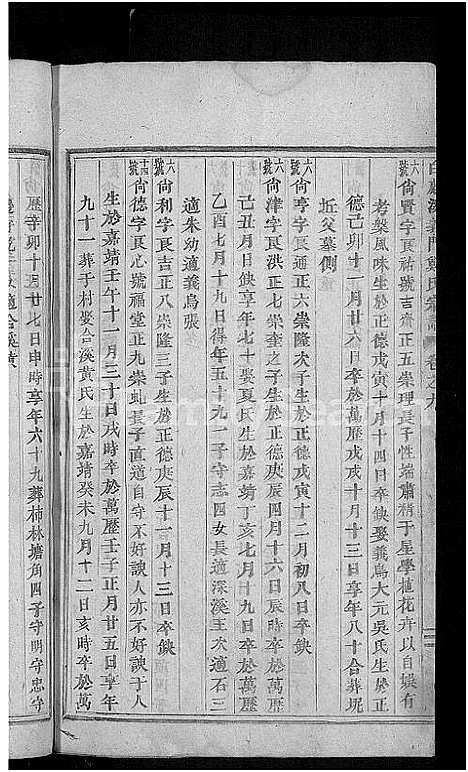 白麟溪義門鄭氏宗譜 卷之九
六號尙賢字良祐號吉齋正五崇理長子性端肅稍于星學植花卉以自娛有
考槃風味生於正德戊寅十月十四日卒缺娶義烏大元吳氏生於正
德己卯十二月廿六日卒於萬歷戊戌十月十三日享年八十合葬坭
坵父墓側
六號尙亨字良 正六崇隆次子生於正德戊寅十二月初八日卒缺
六號尙津字良洪正七崇奎之子生於正德庚辰四月十六日辰時卒於萬歷
己丑月日缺享年七十娶夏氏生於嘉靖丁亥七月十九日卒於萬歷
乙酉七月十九日得年五十九一子守志四女長適深溪王次適石三
適朱幼適義烏張
六號尙利字良吉正八崇隆三子生於正德庚辰十一月十三日卒缺
十四號尙德字良心號福堂正九崇虬長子直道自守不好諛人亦不好諛于人
生於嘉靖壬午十一月三十日戌時卒於萬歷壬子正月廿五日享年
九十一葬于村娶合溪黃氏生於嘉靖癸未九月十二日亥時卒於萬
歷辛卯十月廿七日申時享年六十九葬柿林塘角四子守明守忠守